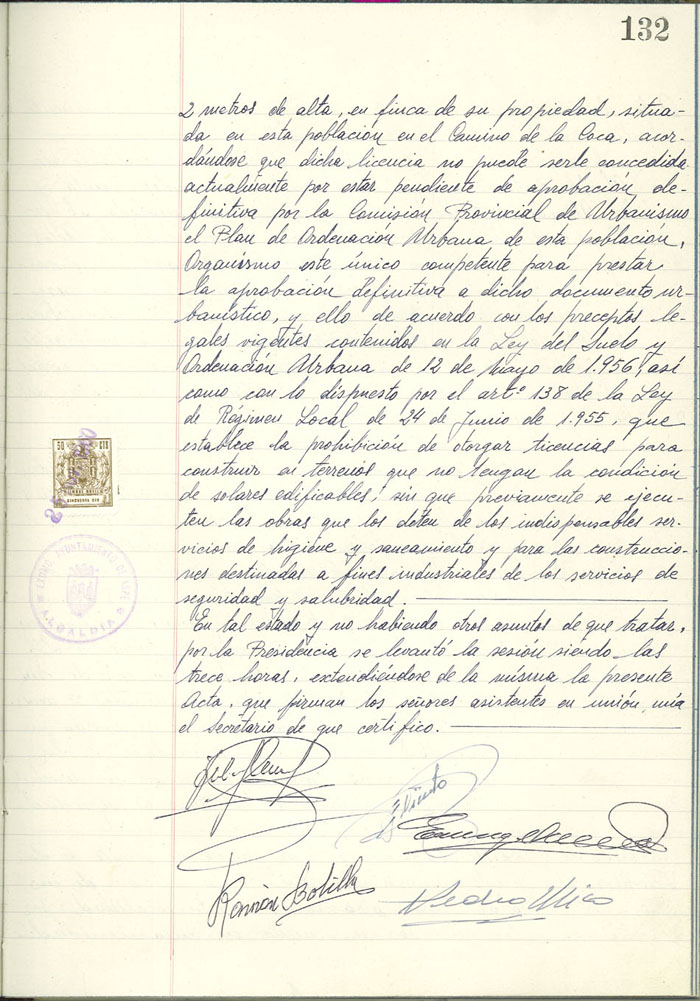 132
2 metros de alta, en finca de su propiedad, situa-
da en esta población en el Camino de la Coca, acor-
dándose que dicha licencia no puede serle concedida
actualmente por estar pendiente de aprobación de-
finitiva por la Comisión Provincial de Urbanismo
el Plan de Ordenación Urbana de esta población,
Organismo este único competente para prestar
la aprobación definitiva a dicho documento ur-
banístico, y ello de acuerdo con los preceptos le-
gales vigentes contenidos en la Ley del Suelo y
Ordenación Urbana de 12 de Mayo de 1.956, así
como con lo dispuesto por el artº 138 de la Ley
de Régimen Local de 24 de Junio de 1.955, que
establece la prohibición de otorgar licencias para
construir en terrenos que no tengan la condición
de solares edificables, sin que previamente se ejecu-
ten las obras que los doten de los indispensables ser-
vicios de higiene y saneamiento y para las construccio-
nes destinadas a fines industriales de los servicios de
seguridad y salubridad.
En tal estado y no habiendo otros asuntos de que tratar,
por la Presidencia se levantó la sesión siendo las
trece horas, extendiéndose de la misma la presente
Acta, que firman los señores asistentes en unión, mía
el Secretario de que certifico.
50 CTS
ALCALDIA
Ramón Botella
Pedro Mico